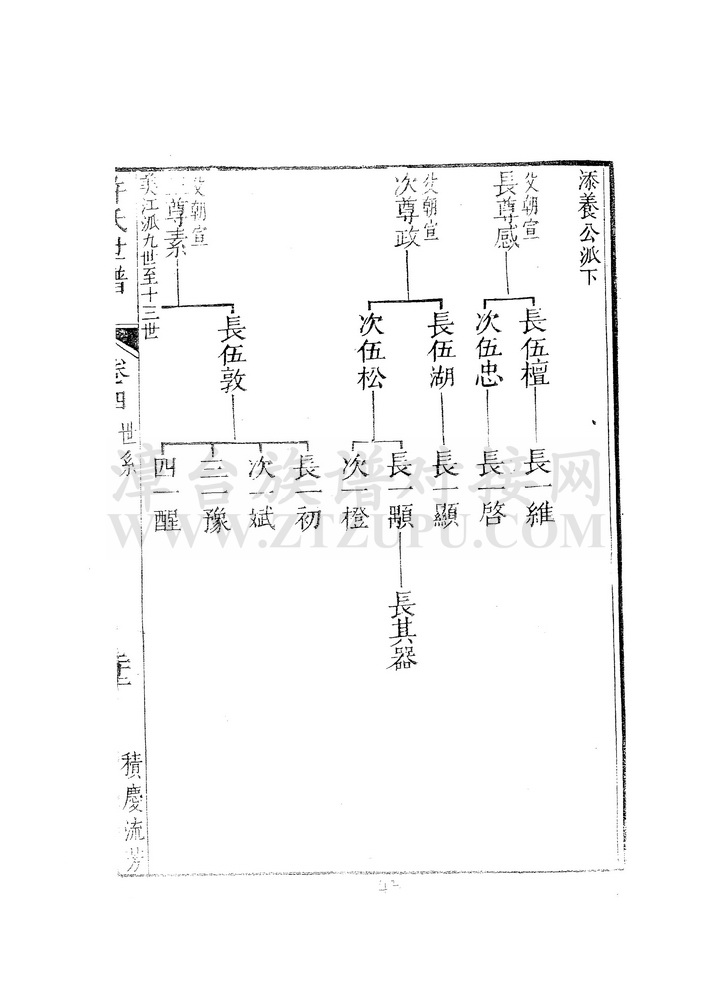 添養公派下
父朝宣
長尊感
長伍檀
長一維
次伍忠
長一啓
父朝宣
次尊政
長伍湖
長一顯
次伍松
長一顒
長其器
次一橙
父朝宣
三尊素
長伍敦
長一初
次一斌
三一豫
四一醒
江派九世至十三世
許氏世譜
卷四
世系
積慶流芳
漳台族谱对接网
WWW.ZTZUPU.COM